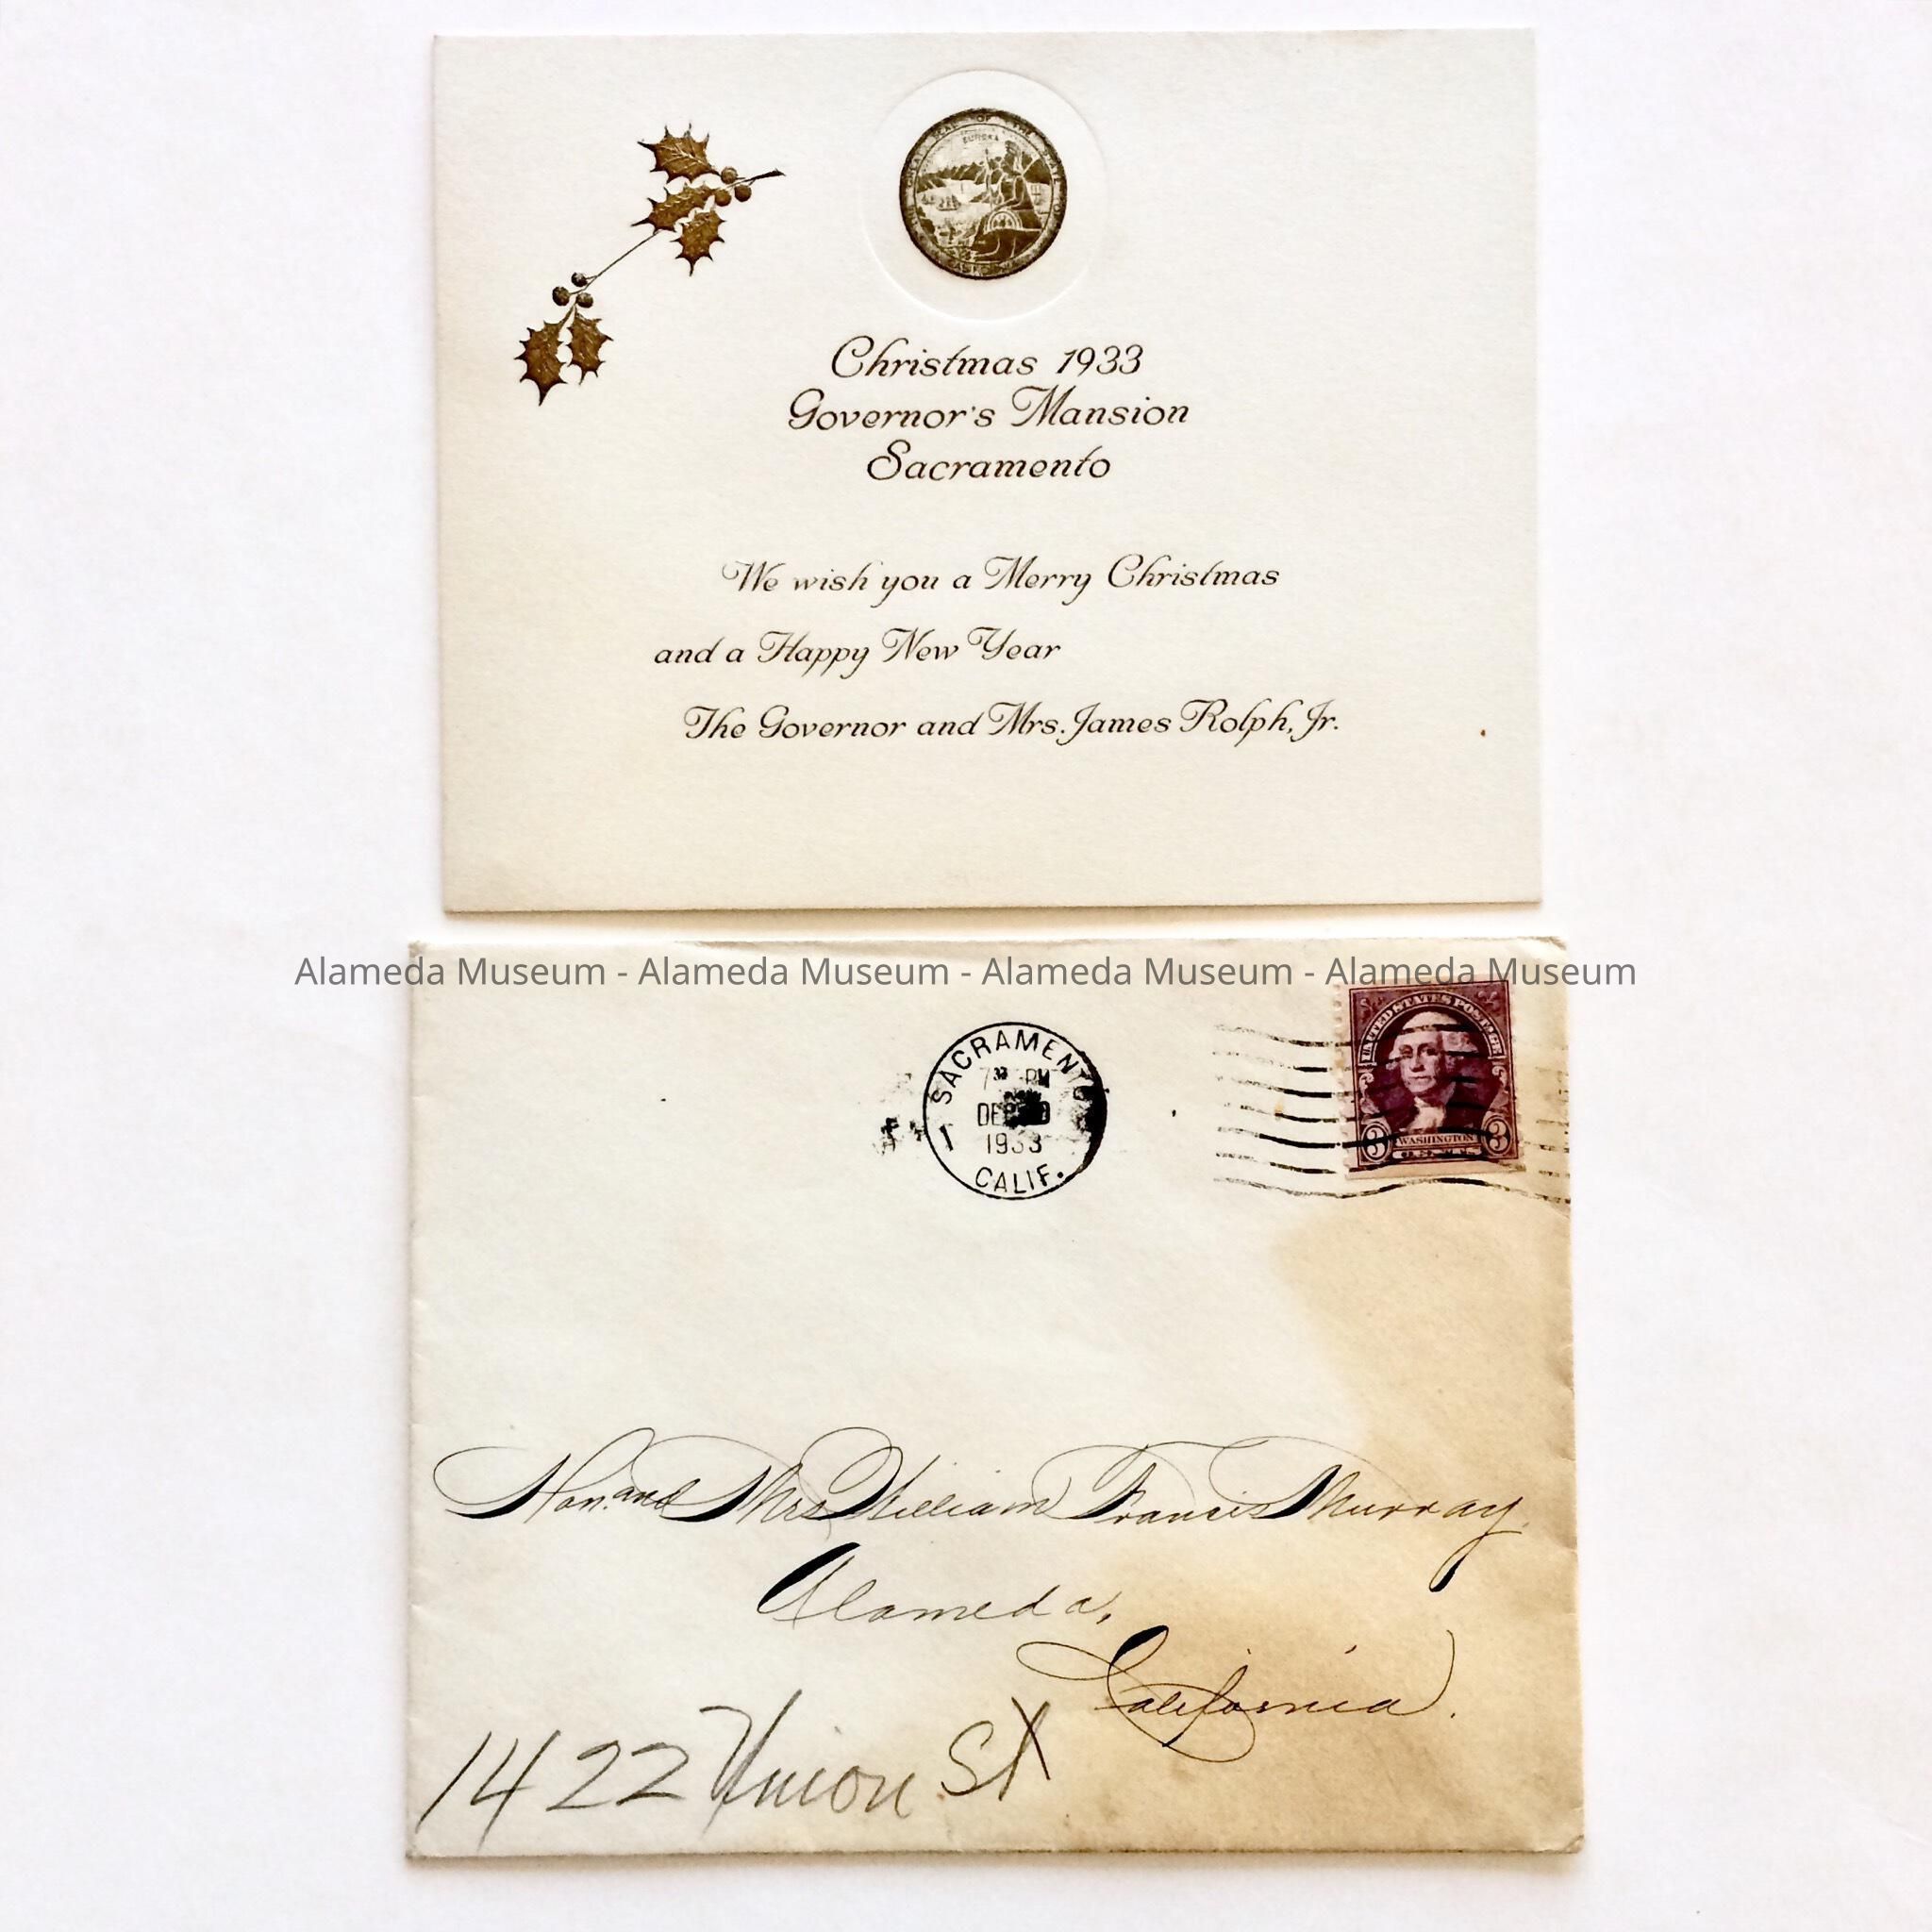 THE GREAT SEAL OF THE STATE OF CALIFORNIA
EUREKA
Christmas 1933
Governor's Mansion
Sacramento
We wish you a Merry Christmas
and a Happy New Year
The Governor and Mrs. James Rolph, Jr.
Alameda Museum - Alameda Museum - Alameda Museum - Alameda Museum
UNITED STATES POSTAGE
3 WASHINGTON 3
CENTS
SACRAMENTO
PM
1933
1
CALIF.
Hon. and Mrs William Francis Murray
Alameda,
California.
1422 Union St